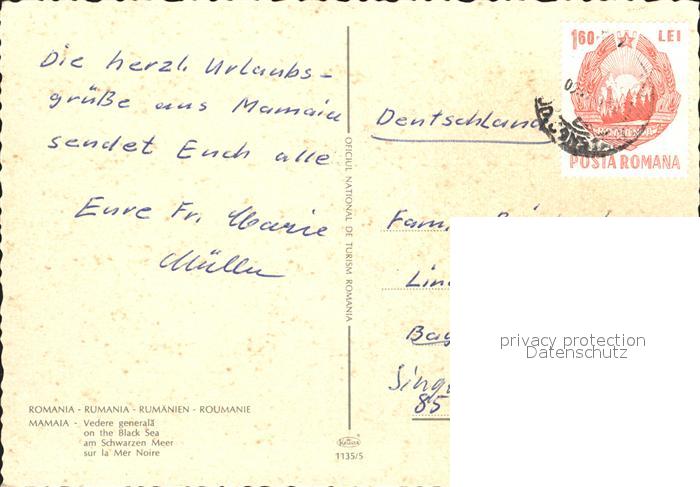 Die herzl. Urlaubs-
grüße aus Mamaia
sendet Euch alle
Eure Fr. Marie
Müller
OFICIUL NATIONAL DE TURISM ROMANIA
ROMANIA - RUMANIA - RUMÄNIEN - ROUMANIE
MAMAIA - Vedere generală
on the Black Sea
am Schwarzen Meer
sur la Mer Noire
1135/5
1,60 LEI
POSTA ROMANA
Deutschland
Fam.
Lin
Bay
85
privacy protection
Datenschutz